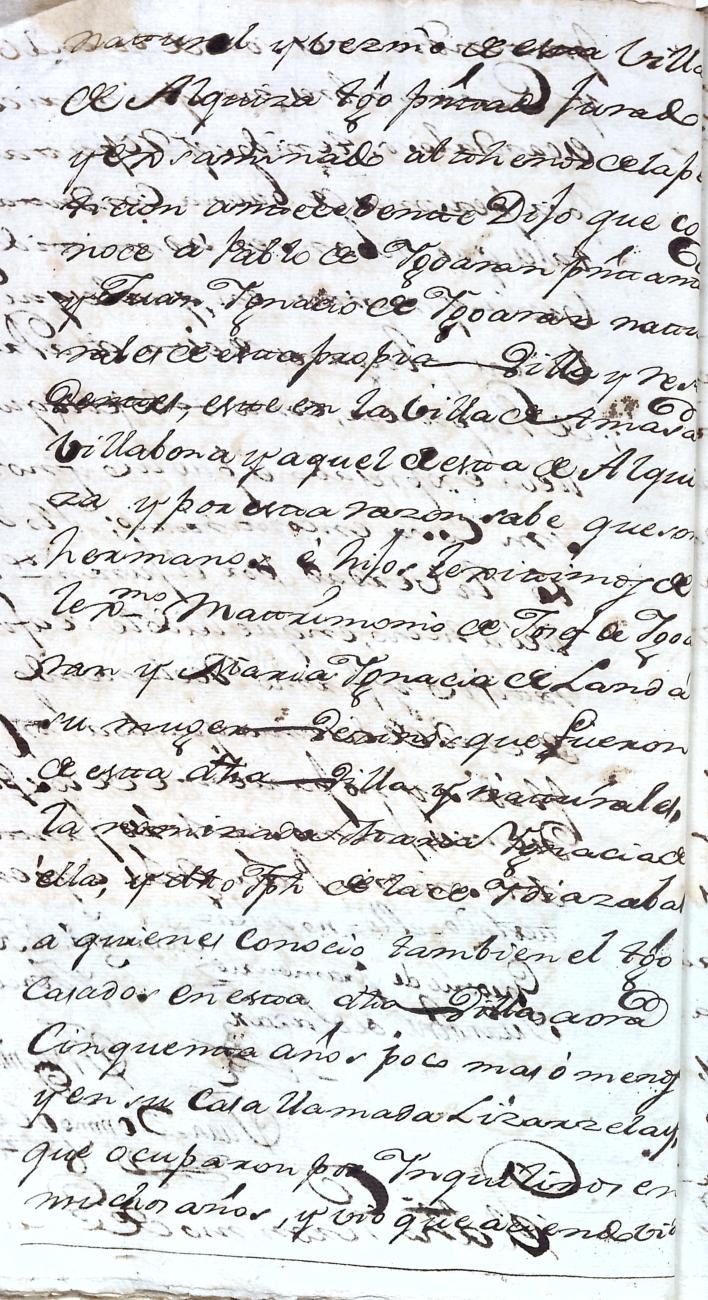 natural y vezino de esta Villa
de Alquiza tgō pntado Jurado
y exsaminado al thenor de la pe
ticion antecedente Dijo que co
noce á Pablo de Ygoaran pntante
y Juan Ygnacio de Ygoaran natu
rales de esta propia Villa y Resi
dentes, este en la Villa de Amasa
Villabona y aquel de esta de Alqui
za y por esta razon sabe que son
hermanos é hijos lexitimos de
lexmo Matrimonio de Josef de Ygoa
ran y Maria Ygnacia de Landa
su muger Vezinos que fueron
de esta dha Villa y naturales,
la nominada Maria Ygnacia de
ella, y dho Jph de la de Ydiazabal
a quienes Conocio tambien el tgō
Casados en esta dha Villa, aora
Cinquenta años poco mas ó menos
y en su Casa llamada Lizarzelay,
que ocuparon por Ynquilinos en
muchos años, y vio que aciendo vi